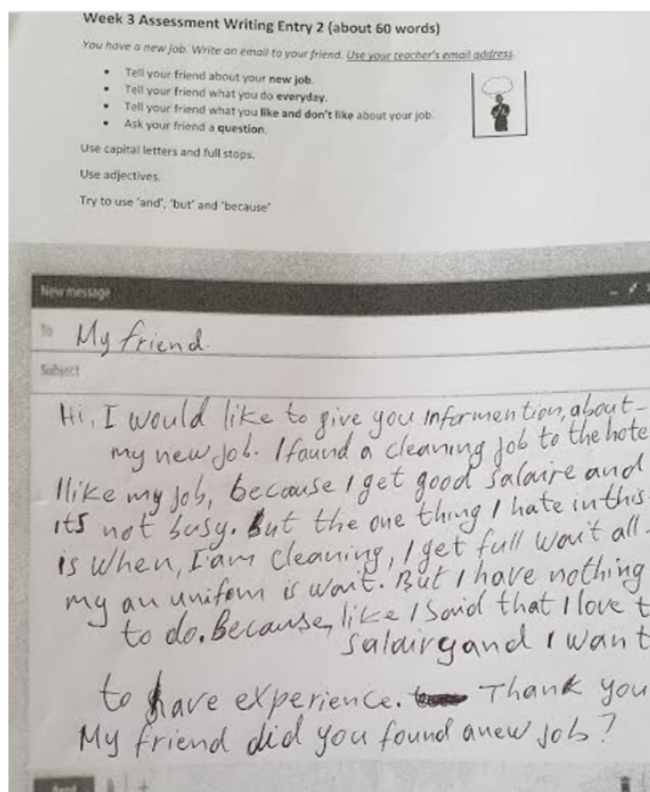 Week 3 Assessment Writing Entry 2 (about 60 words)
You have a new job. Write an email to your friend. Use your teacher's email address.
• Tell your friend about your new job.
• Tell your friend what you do everyday.
• Tell your friend what you like and don't like about your job.
• Ask your friend a question.
Use capital letters and full stops.
Use adjectives.
Try to use 'and', 'but' and 'because'
New message
To My friend.
Subject
Hi, I would like to give you informention, about-
my new job. I found a cleaning job to the hote
I like my job, because I get good salaire and
it's not busy. But the one thing I hate in this
is when, I'am cleaning, I get full wait all-
my an unifom is wait. But I have nothing
to do. Because, like I said that I love t
salairy and I want
to have experience. Thank you
My friend did you found a new job?